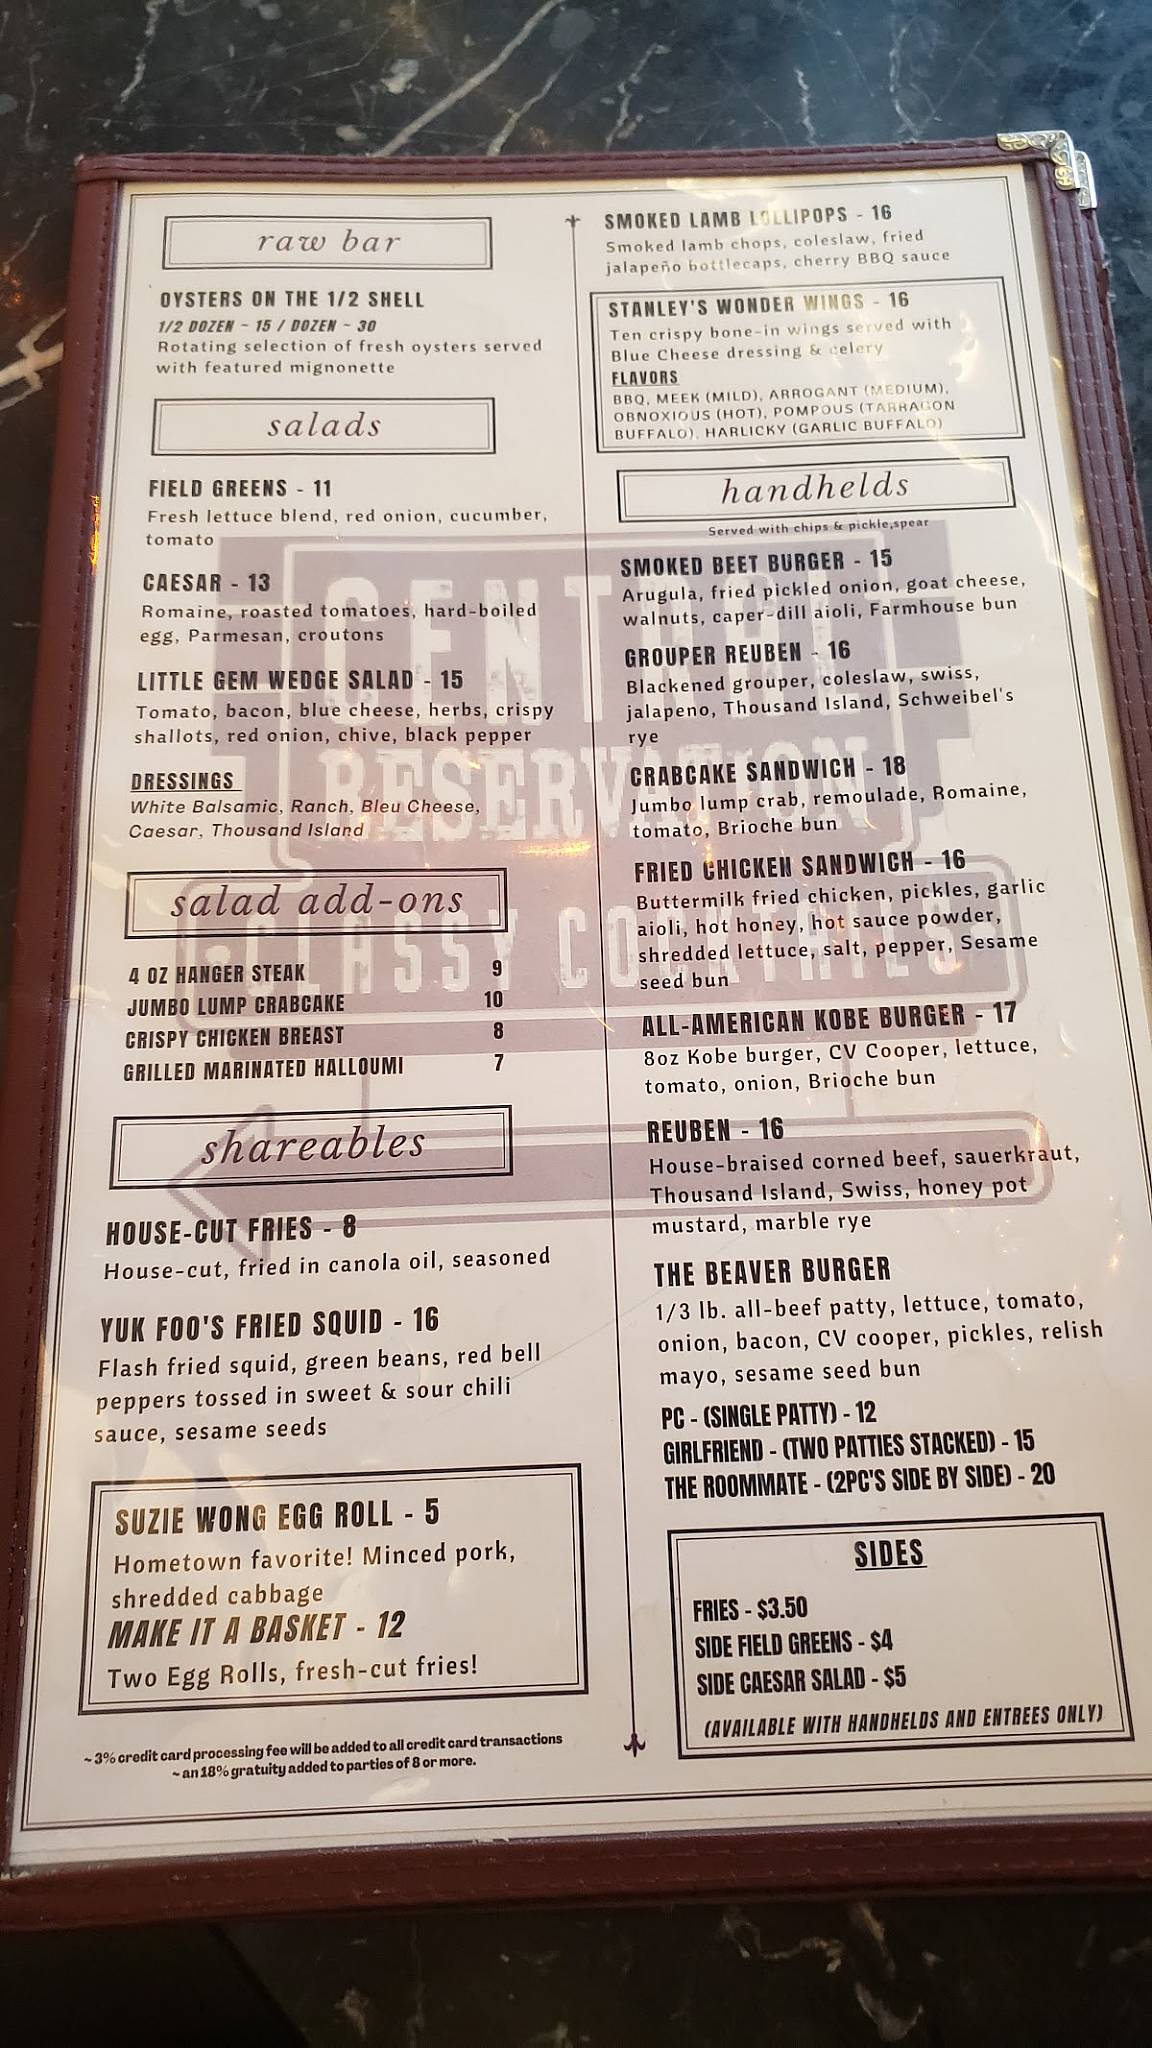 raw bar
OYSTERS ON THE 1/2 SHELL
1/2 DOZEN ~ 15 / DOZEN ~ 30
Rotating selection of fresh oysters served
with featured mignonette
salads
FIELD GREENS - 11
Fresh lettuce blend, red onion, cucumber,
tomato
CAESAR - 13
Romaine, roasted tomatoes, hard-boiled
egg, Parmesan, croutons
LITTLE GEM WEDGE SALAD - 15
Tomato, bacon, blue cheese, herbs, crispy
shallots, red onion, chive, black pepper
DRESSINGS
White Balsamic, Ranch, Bleu Cheese,
Caesar, Thousand Island
salad add-ons
4 OZ HANGER STEAK 9
JUMBO LUMP CRABCAKE 10
CRISPY CHICKEN BREAST 8
GRILLED MARINATED HALLOUMI 7
shareables
HOUSE-CUT FRIES - 8
House-cut, fried in canola oil, seasoned
YUK FOO'S FRIED SQUID - 16
Flash fried squid, green beans, red bell
peppers tossed in sweet & sour chili
sauce, sesame seeds
SUZIE WONG EGG ROLL - 5
Hometown favorite! Minced pork,
shredded cabbage
MAKE IT A BASKET - 12
Two Egg Rolls, fresh-cut fries!
~ 3% credit card processing fee will be added to all credit card transactions
~ an 18% gratuity added to parties of 8 or more.
SMOKED LAMB LOLLIPOPS - 16
Smoked lamb chops, coleslaw, fried
jalapeño bottlecaps, cherry BBQ sauce
STANLEY'S WONDER WINGS - 16
Ten crispy bone-in wings served with
Blue Cheese dressing & celery
FLAVORS
BBQ, MEEK (MILD), ARROGANT (MEDIUM),
OBNOXIOUS (HOT), POMPOUS (TARRAGON
BUFFALO), HARLICKY (GARLIC BUFFALO)
handhelds
Served with chips & pickle,spear
SMOKED BEET BURGER - 15
Arugula, fried pickled onion, goat cheese,
walnuts, caper-dill aioli, Farmhouse bun
GROUPER REUBEN - 16
Blackened grouper, coleslaw, swiss,
jalapeno, Thousand Island, Schweibel's
rye
CRABCAKE SANDWICH - 18
Jumbo lump crab, remoulade, Romaine,
tomato, Brioche bun
FRIED CHICKEN SANDWICH - 16
Buttermilk fried chicken, pickles, garlic
aioli, hot honey, hot sauce powder,
shredded lettuce, salt, pepper, Sesame
seed bun
ALL-AMERICAN KOBE BURGER - 17
8oz Kobe burger, CV Cooper, lettuce,
tomato, onion, Brioche bun
REUBEN - 16
House-braised corned beef, sauerkraut,
Thousand Island, Swiss, honey pot
mustard, marble rye
THE BEAVER BURGER
1/3 lb. all-beef patty, lettuce, tomato,
onion, bacon, CV cooper, pickles, relish
mayo, sesame seed bun
PC - (SINGLE PATTY) - 12
GIRLFRIEND - (TWO PATTIES STACKED) - 15
THE ROOMMATE - (2PC'S SIDE BY SIDE) - 20
SIDES
FRIES - $3.50
SIDE FIELD GREENS - $4
SIDE CAESAR SALAD - $5
(AVAILABLE WITH HANDHELDS AND ENTREES ONLY)
CENTRAL
RESERVATION
CLASSY COCKTAILS